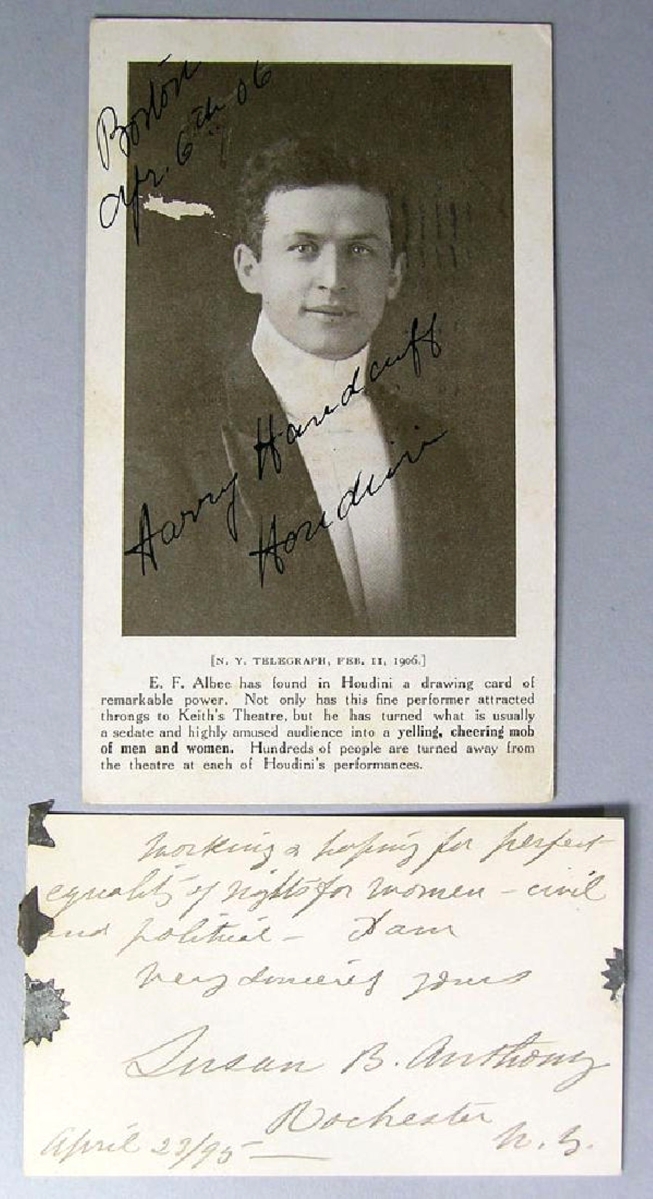 Boston
Apr. 6th 06
Harry Handcuff
Houdini
[N. Y. TELEGRAPH, FEB. 11, 1906.]
E. F. Albee has found in Houdini a drawing card of
remarkable power. Not only has this fine performer attracted
throngs to Keith's Theatre, but he has turned what is usually
a sedate and highly amused audience into a yelling, cheering mob
of men and women. Hundreds of people are turned away from
the theatre at each of Houdini's performances.
Working & hoping for perfect
equality of rights for women - civil
and political - I am
very sincerely yours
Susan B. Anthony
Rochester
April 23/95 - N. Y.